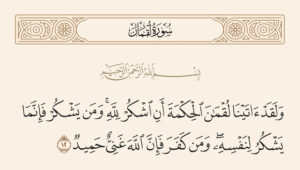 سُورَةُ لُقْمَانَ
بِسْمِ اللَّهِ الرَّحْمَٰنِ الرَّحِيمِ
وَلَقَدْ ءَاتَيْنَا لُقْمَٰنَ ٱلْحِكْمَةَ أَنِ ٱشْكُرْ لِلَّهِ ۚ وَمَن يَشْكُرْ فَإِنَّمَا
يَشْكُرُ لِنَفْسِهِۦ ۖ وَمَن كَفَرَ فَإِنَّ ٱللَّهَ غَنِىٌّ حَمِيدٌ ١٢